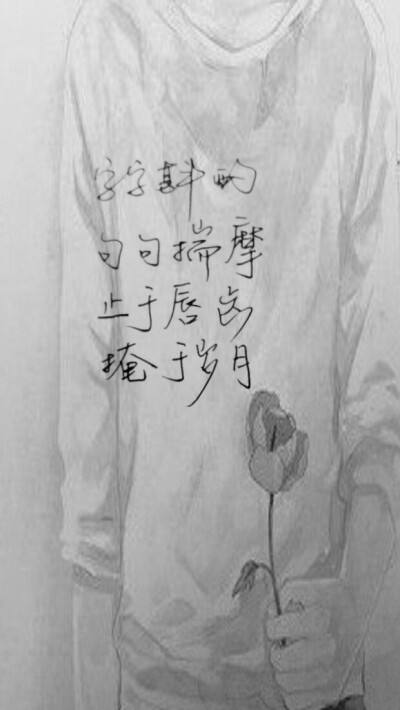 字字斟酌
句句揣摩
止于唇齿
掩于岁月